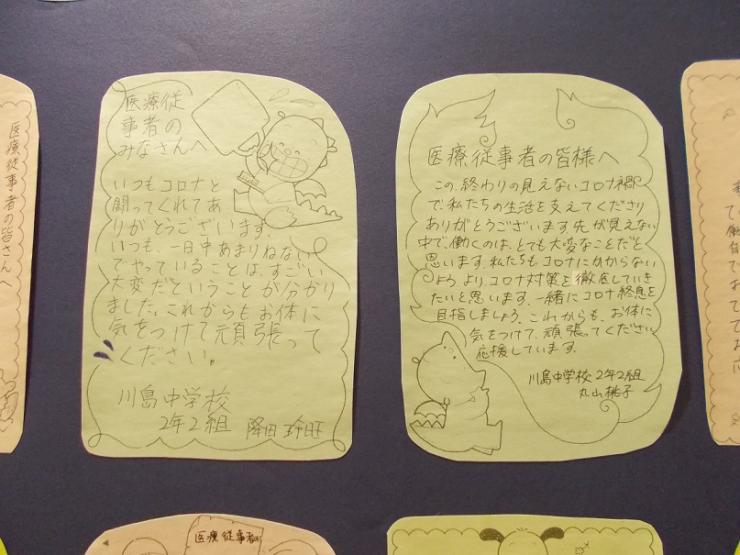 医療従事者の皆さんへ
医療従
事者の
みなさんへ
いつもコロナと
闘ってくれてあ
りがとうございます。
いつも、一日中あまりねない
でやっていることは、すごい
大変だということが分かり
ました。これからもお体に
気をつけて頑張って
ください。
川島中学校
2年2組
医療従事者の皆様へ
この、終わりの見えないコロナ禍
で、私たちの生活を支えてくださり
ありがとうございます。先が見えない
中で、働くのは、とても大変なことだと
思います。私たちもコロナにかからない
よう、より、コロナ対策を徹底していき
たいと思います。一緒にコロナ終息を
目指しましょう。これからも、お体に
気をつけて、頑張ってください。
応援しています。
川島中学校 2年2組
丸山桃子
医療従事者